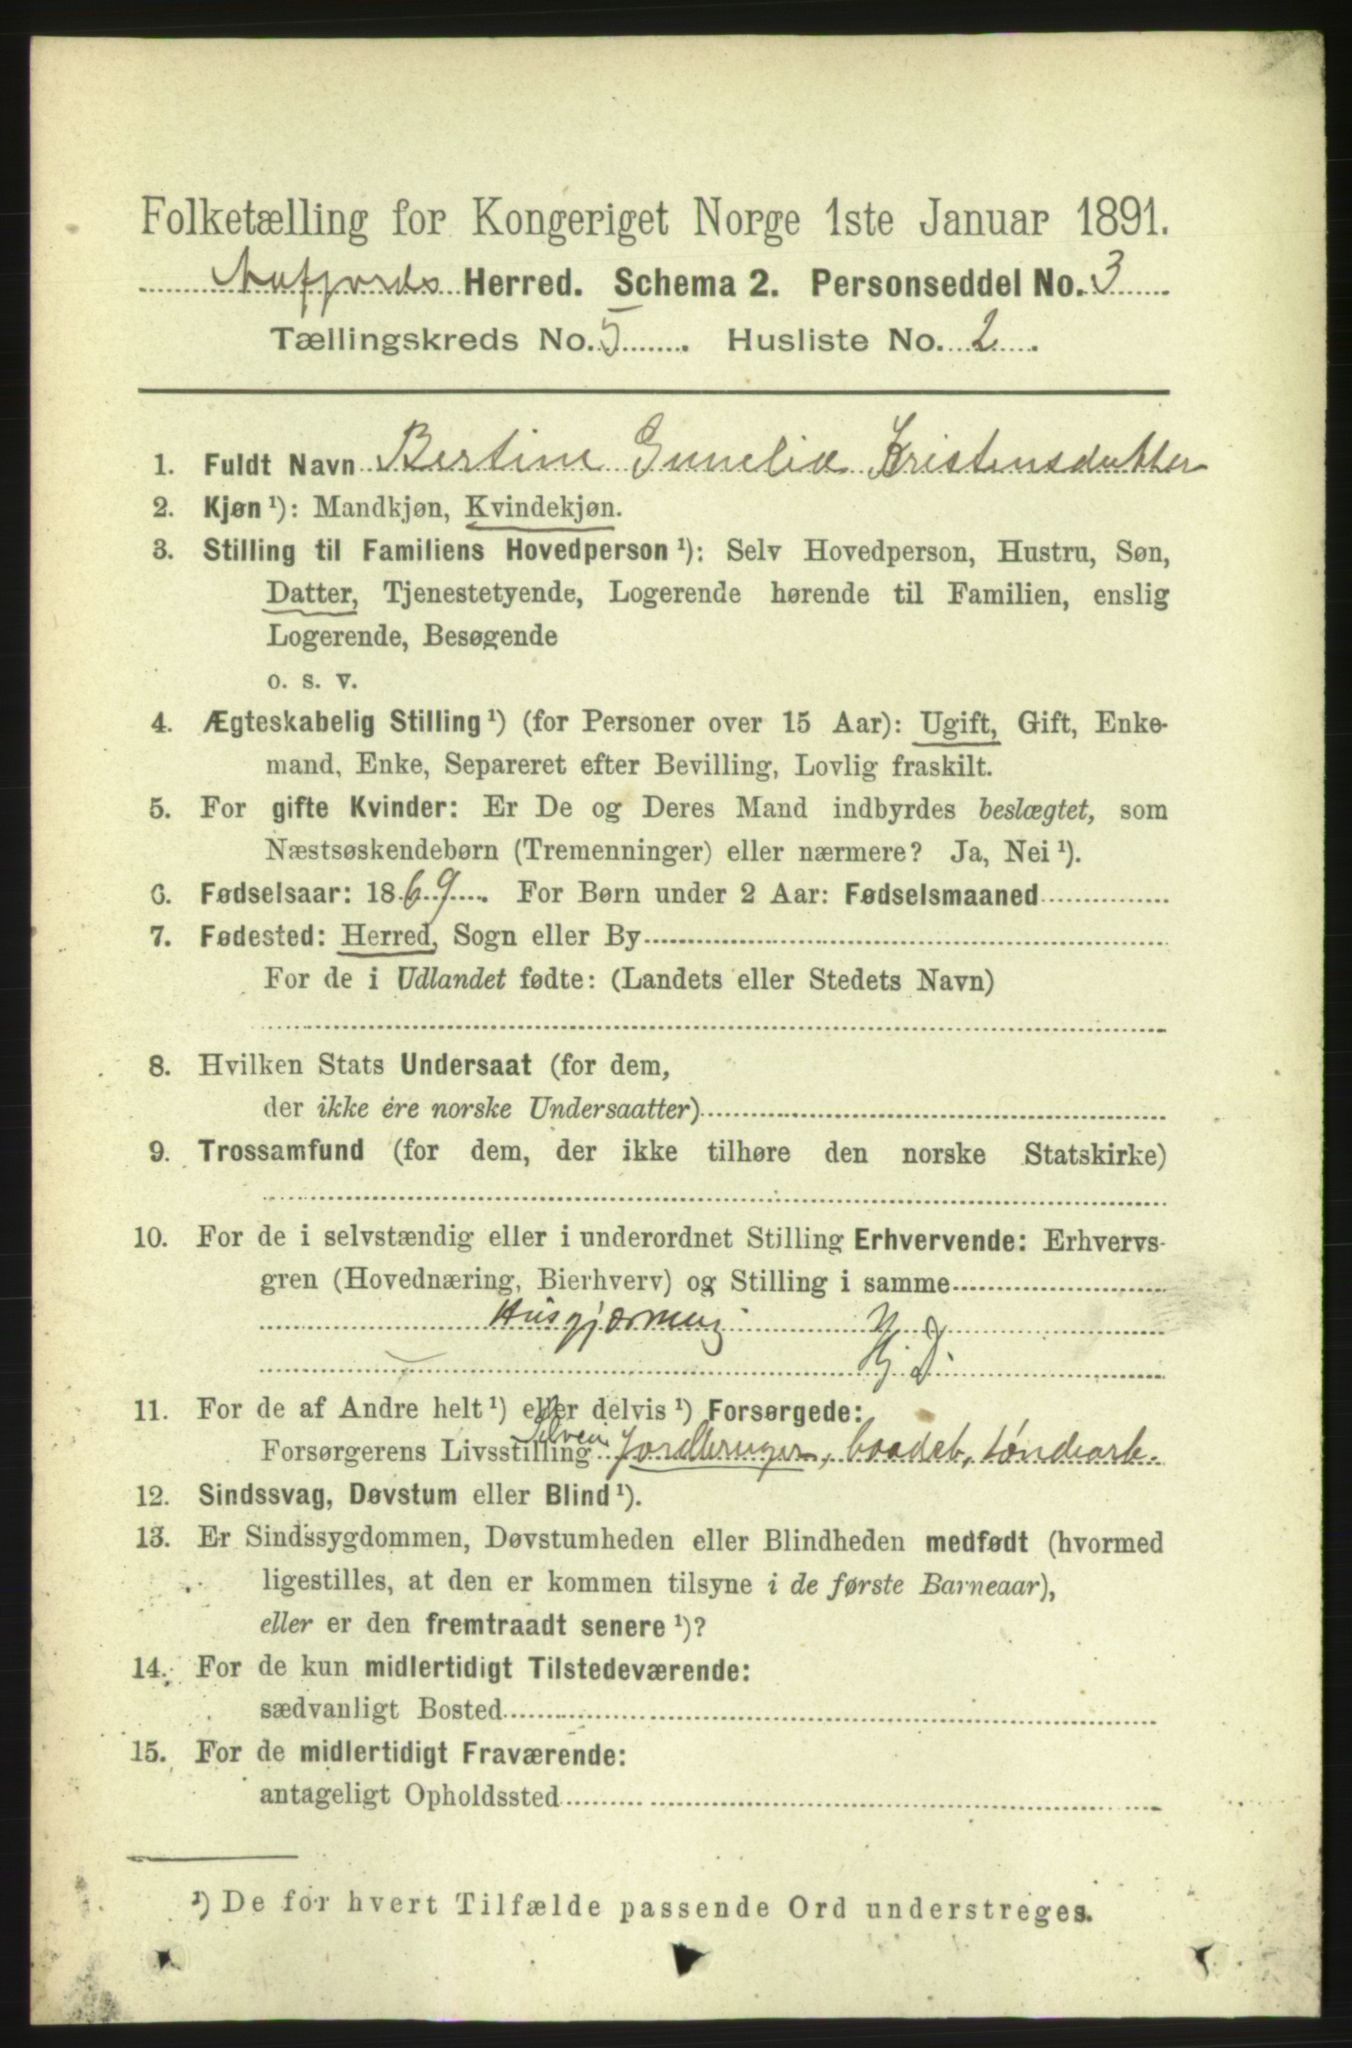 Folketælling for Kongeriget Norge 1ste Januar 1891.
Aafjords Herred. Schema 2. Personseddel No. 3
Tællingskreds No. 5. Husliste No. 2.
1. Fuldt Navn Bertine Gunelia Kristensdatter
2. Kjøn ¹): Mandkjøn, Kvindekjøn.
3. Stilling til Familiens Hovedperson ¹): Selv Hovedperson, Hustru, Søn,
Datter, Tjenestetyende, Logerende hørende til Familien, enslig
Logerende, Besøgende
o. s. v.
4. Ægteskabelig Stilling ¹) (for Personer over 15 Aar): Ugift, Gift, Enke-
mand, Enke, Separeret efter Bevilling, Lovlig fraskilt.
5. For gifte Kvinder: Er De og Deres Mand indbyrdes beslægtet, som
Næstsøskendebørn (Tremenninger) eller nærmere? Ja, Nei ¹).
6. Fødselsaar: 1869. For Børn under 2 Aar: Fødselsmaaned
7. Fødested: Herred, Sogn eller By
For de i Udlandet fødte: (Landets eller Stedets Navn)
8. Hvilken Stats Undersaat (for dem,
der ikke ere norske Undersaatter)
9. Trossamfund (for dem, der ikke tilhøre den norske Statskirke)
10. For de i selvstændig eller i underordnet Stilling Erhvervende: Erhvervs-
gren (Hovednæring, Bierhverv) og Stilling i samme
Husgjerning
11. For de af Andre helt ¹) eller delvis ¹) Forsørgede:
Forsørgerens Livsstilling Jordbruger, baadeb, tøndearb.
12. Sindssvag, Døvstum eller Blind ¹).
13. Er Sindssygdommen, Døvstumheden eller Blindheden medfødt (hvormed
ligestilles, at den er kommen tilsyne i de første Barneaar),
eller er den fremtraadt senere ¹)?
14. For de kun midlertidigt Tilstedeværende:
sædvanligt Bosted
15. For de midlertidigt Fraværende:
antageligt Opholdssted
¹) De for hvert Tilfælde passende Ord understreges.